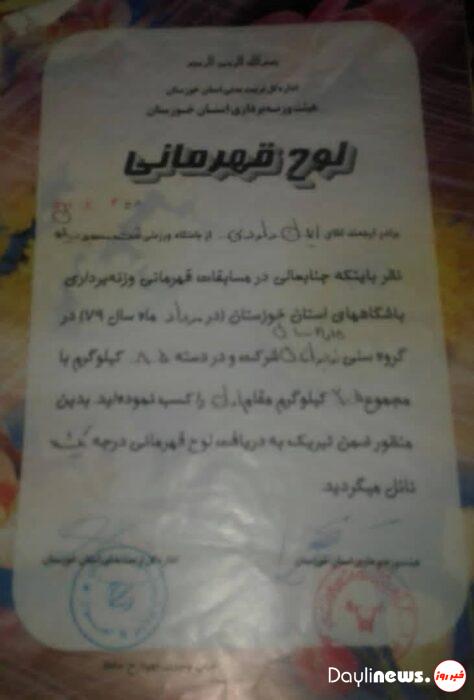 بسم الله الرحمن الرحیم
اداره کل تربیت بدنی استان خوزستان
هیئت وزنه برداری استان خوزستان
لوح قهرمانی
برادر ارجمند آقای از باشگاه ورزشی
نظر باینکه جنابعالی در مسابقات قهرمانی وزنه‌برداری
باشگاههای استان خوزستان (در مرداد ماه سال ۷۹) در
گروه سنی شرکت و در دسته ۸۵ کیلوگرم با
مجموع کیلوگرم مقام اول را کسب نموده‌اید بدین
منظور ضمن تبریک به دریافت لوح قهرمانی درجه
نائل میگردید.
هیئت وزنه برداری استان خوزستان
اداره کل تربیت بدنی استان خوزستان
Daylinews.
خبر روز